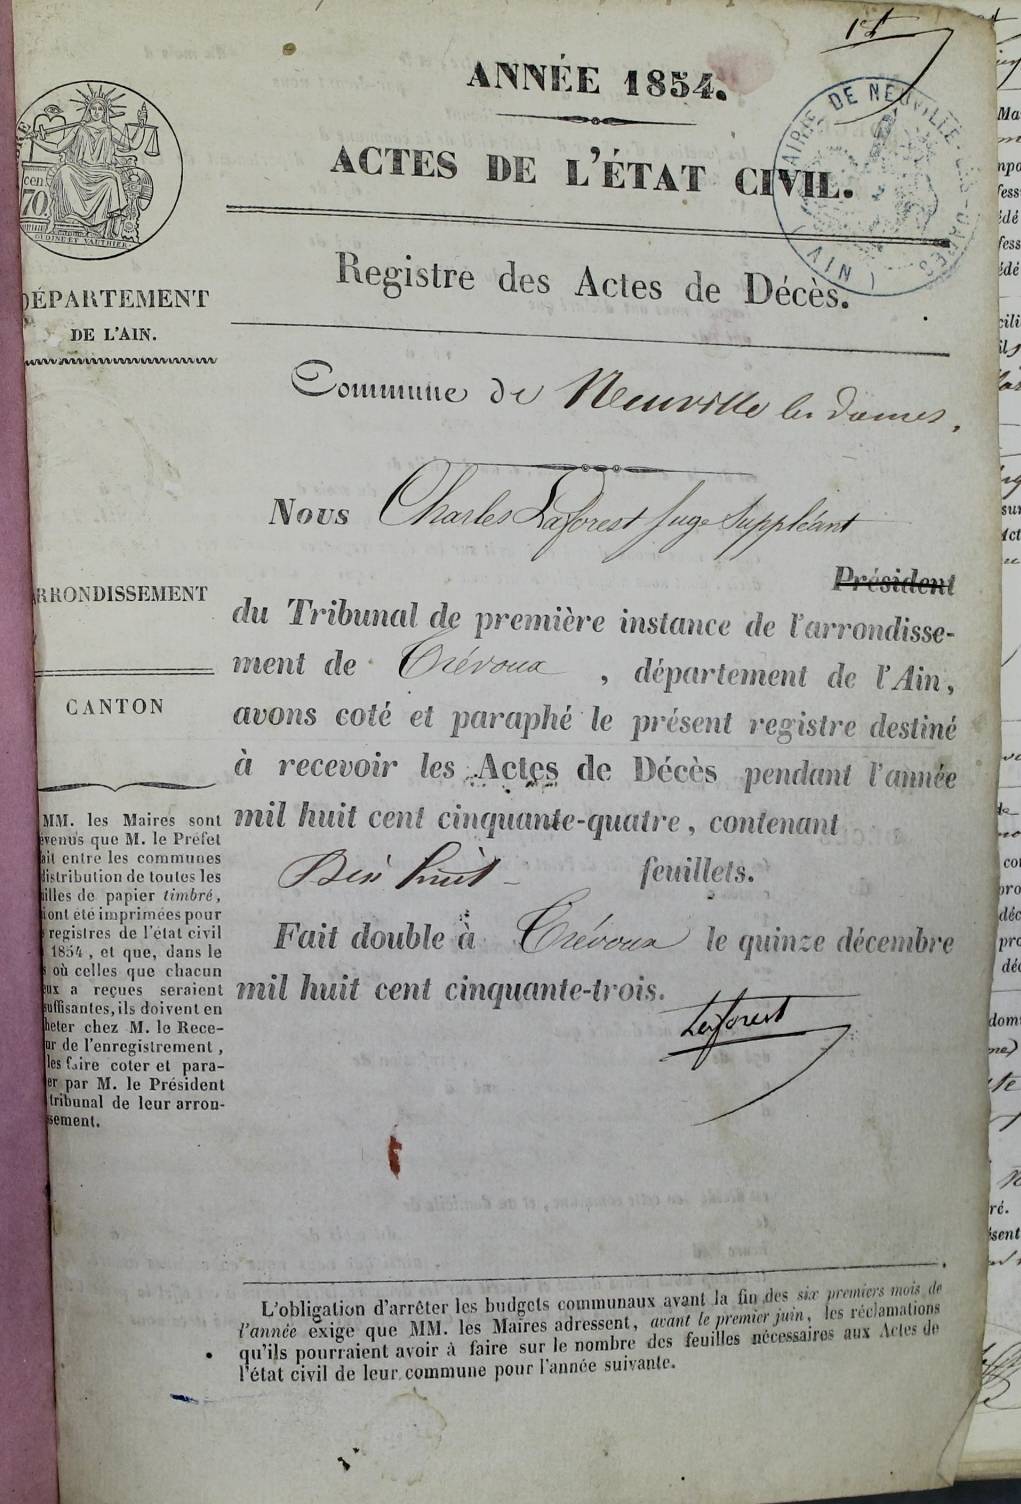 1er
ANNÉE 1854.
ACTES DE L'ÉTAT CIVIL.
MAIRIE DE NEUVILLE-LES-DAMES
(AIN)
cen
70
OUDINE ET VAUTHIER
Registre des Actes de Décès.
DÉPARTEMENT
DE L'AIN.
Commune de Neuville les Dames.
Nous Charles Laforest Juge Suppléant
Président
ARRONDISSEMENT
du Tribunal de première instance de l'arrondisse-
ment de Trévoux, département de l'Ain,
CANTON
avons coté et paraphé le présent registre destiné
à recevoir les Actes de Décès pendant l'année
mil huit cent cinquante-quatre, contenant
Dix huit feuillets.
Fait double à Trévoux le quinze décembre
mil huit cent cinquante-trois.
Laforest
MM. les Maires sont
évenus que M. le Préfet
ait entre les communes
distribution de toutes les
uilles de papier timbré,
ont été imprimées pour
registres de l'état civil
1854, et que, dans le
s où celles que chacun
eux a reçues seraient
suffisantes, ils doivent en
heter chez M. le Rece-
ur de l'enregistrement,
les faire coter et para-
er par M. le Président
tribunal de leur arron-
ssement.
L'obligation d'arrêter les budgets communaux avant la fin des six premiers mois de
l'année exige que MM. les Maires adressent, avant le premier juin, les réclamations
qu'ils pourraient avoir à faire sur le nombre des feuilles nécessaires aux Actes de
l'état civil de leur commune pour l'année suivante.